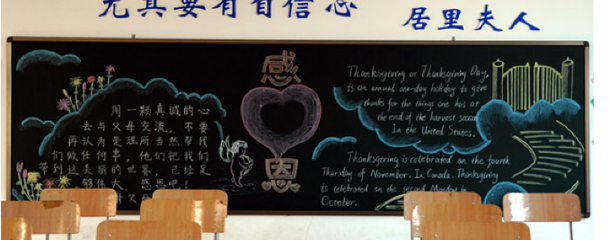 尤其要有自信心
居里夫人
感
恩
用一颗真诚的心
去与父母交流，不要
再认为是理所当然帮我
们做任何事，他们把我们
带到这美丽的世界，已经
够伟大
Thanksgiving or Thanksgiving Day,
is an annual one-day holiday to give
thanks for the things one has at
the end of the harvest season
In the United States,
Thanksgiving is celebrated on the fourth
Thursday of November. In Canada, Thanksgiving
is celebrated on the second Monday in
October.